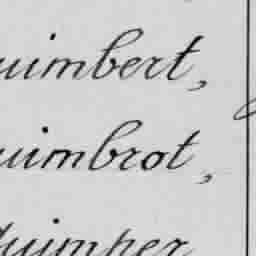 uimbert,
uimbrot,
uimper